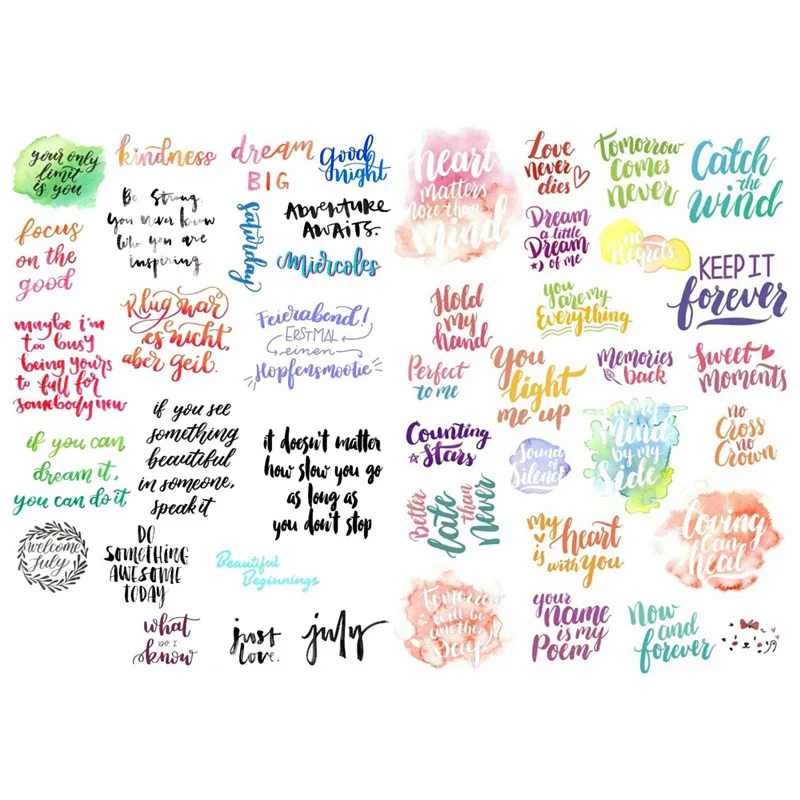 your only
limit
is you
kindness
dream
BIG
good
night
Be Strong.
You never know
who you are
inspiring
Saturday
ADVENTURE
AWAITS.
Miércoles
focus
on the
good
Klug war
es nicht,
aber geil.
Feierabend!
ERSTMAL
einen
Hopfensmootie
maybe i'm
too busy
being yours
to fall for
somebody new
if you see
something
beautiful
in someone,
speak it
it doesn't matter
how slow you go
as long as
you don't stop
if you can
dream it,
you can do it
welcome
July
DO
SOMETHING
AWESOME
TODAY
Beautiful
Beginnings
what
DO I
know
just
love.
july
heart
matters
more than
mind
Love
never
dies
Tomorrow
comes
never
Catch
the
wind
Dream
a little
Dream
of me
no
Regrets
KEEP IT
forever
Hold
my
hand
You
are my
Everything
Perfect
to me
You
light
me up
Memories
back
Sweet
moments
Counting
Stars
Sound
of
Silence
in my
Mind
by my
Side
no
Cross
no
Crown
Better
late
than
never
My
heart
is
with you
Loving
can
heal
Tomorrow
will be
another
Day
your
name
is my
Poem
Now
and
forever